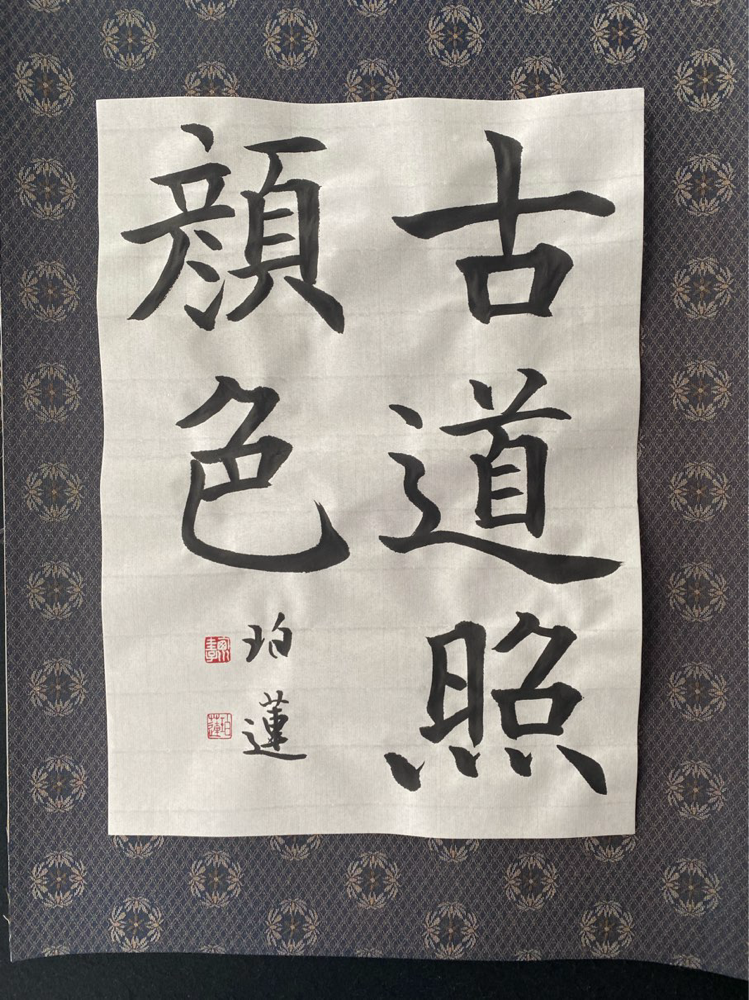 古道照
顔色
珀蓮